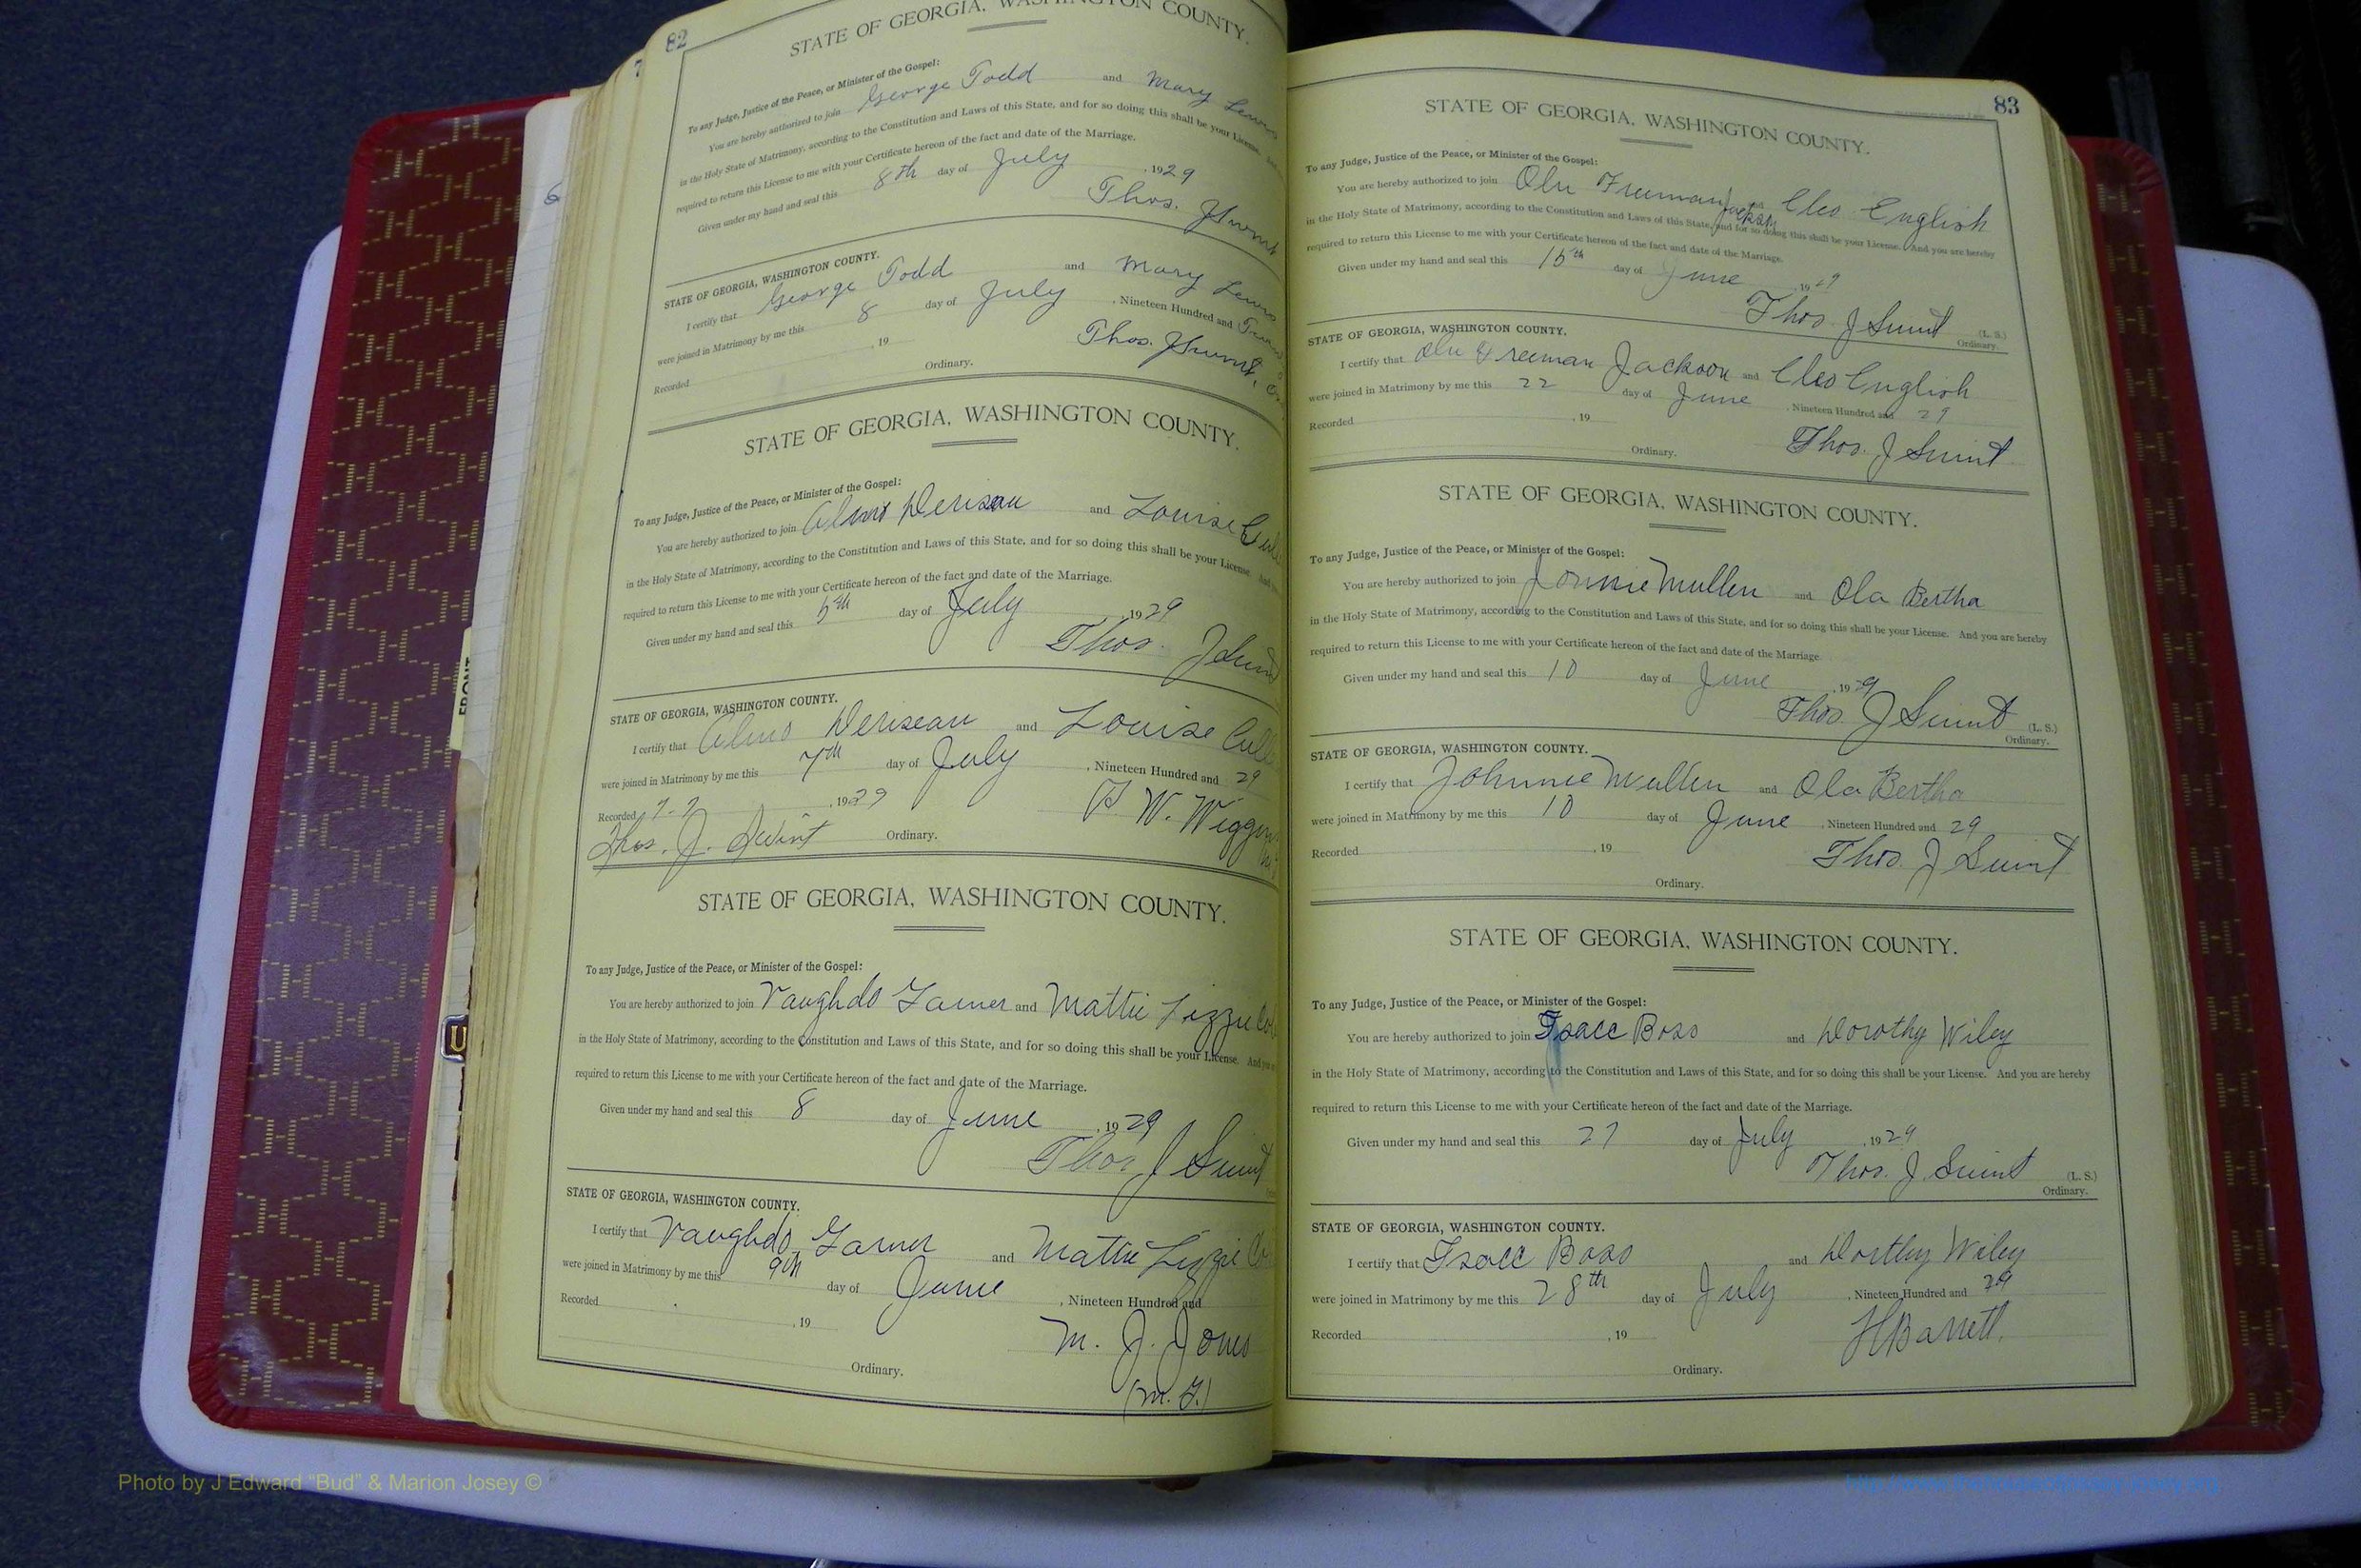 82
STATE OF GEORGIA, WASHINGTON COUNTY.
To any Judge, Justice of the Peace, or Minister of the Gospel:
You are hereby authorized to join George Todd and Mary Lewis
in the Holy State of Matrimony, according to the Constitution and Laws of this State, and for so doing this shall be your License.
required to return this License to me with your Certificate hereon of the fact and date of the Marriage.
Given under my hand and seal this 8th day of July, 1929
Thos. J Swint
STATE OF GEORGIA, WASHINGTON COUNTY.
I certify that George Todd and Mary Lewis
were joined in Matrimony by me this 8 day of July, Nineteen Hundred and
Recorded , 19 Thos. J Swint,
Ordinary.
STATE OF GEORGIA, WASHINGTON COUNTY.
To any Judge, Justice of the Peace, or Minister of the Gospel:
You are hereby authorized to join Almo Deriseau and Louise
in the Holy State of Matrimony, according to the Constitution and Laws of this State, and for so doing this shall be your License. And
required to return this License to me with your Certificate hereon of the fact and date of the Marriage.
Given under my hand and seal this 5th day of July, 1929
Thos. J Swint
STATE OF GEORGIA, WASHINGTON COUNTY.
I certify that Almo Deriseau and Louise
were joined in Matrimony by me this 7th day of July, Nineteen Hundred and 29
Recorded 7-7, 1929 W. Wiggins
Thos. J. Swint Ordinary.
STATE OF GEORGIA, WASHINGTON COUNTY.
To any Judge, Justice of the Peace, or Minister of the Gospel:
You are hereby authorized to join Vaughdo Garner and Mattie Lizzie
in the Holy State of Matrimony, according to the Constitution and Laws of this State, and for so doing this shall be your License. And you
required to return this License to me with your Certificate hereon of the fact and date of the Marriage.
Given under my hand and seal this 8 day of June, 1929
Thos J Swint
STATE OF GEORGIA, WASHINGTON COUNTY.
I certify that Vaughdo Garner and Mattie Lizzie
were joined in Matrimony by me this 9th day of June, Nineteen Hundred and
Recorded , 19 M. J. Jones
Ordinary. (M. G.)
83
STATE OF GEORGIA, WASHINGTON COUNTY.
To any Judge, Justice of the Peace, or Minister of the Gospel:
You are hereby authorized to join Olu Freeman Jackson and Cleo English
in the Holy State of Matrimony, according to the Constitution and Laws of this State, and for so doing this shall be your License. And you are hereby
required to return this License to me with your Certificate hereon of the fact and date of the Marriage.
Given under my hand and seal this 15th day of June, 1929
Thos J Swint (L. S.)
Ordinary.
STATE OF GEORGIA, WASHINGTON COUNTY.
I certify that Olu Freeman Jackson and Cleo English
were joined in Matrimony by me this 22 day of June, Nineteen Hundred and 29
Recorded , 19 Thos. J Swint
Ordinary.
STATE OF GEORGIA, WASHINGTON COUNTY.
To any Judge, Justice of the Peace, or Minister of the Gospel:
You are hereby authorized to join Jonnie Mullen and Ola Bertha
in the Holy State of Matrimony, according to the Constitution and Laws of this State, and for so doing this shall be your License. And you are hereby
required to return this License to me with your Certificate hereon of the fact and date of the Marriage
Given under my hand and seal this 10 day of June, 1929
Thos J Swint (L. S.)
Ordinary.
STATE OF GEORGIA, WASHINGTON COUNTY.
I certify that Johnnie Mullen and Ola Bertha
were joined in Matrimony by me this 10 day of June, Nineteen Hundred and 29
Recorded , 19 Thos. J Swint
Ordinary.
STATE OF GEORGIA, WASHINGTON COUNTY.
To any Judge, Justice of the Peace, or Minister of the Gospel:
You are hereby authorized to join Isacc Boso and Dorothy Wiley
in the Holy State of Matrimony, according to the Constitution and Laws of this State, and for so doing this shall be your License. And you are hereby
required to return this License to me with your Certificate hereon of the fact and date of the Marriage.
Given under my hand and seal this 27 day of July, 1929
Thos. J. Swint (L. S.)
Ordinary.
STATE OF GEORGIA, WASHINGTON COUNTY.
I certify that Isacc Boso and Dorthy Wiley
were joined in Matrimony by me this 28th day of July, Nineteen Hundred and 29
Recorded , 19 H Barrett.
Ordinary.
FRONT
Photo by J Edward "Bud" & Marion Josey ©